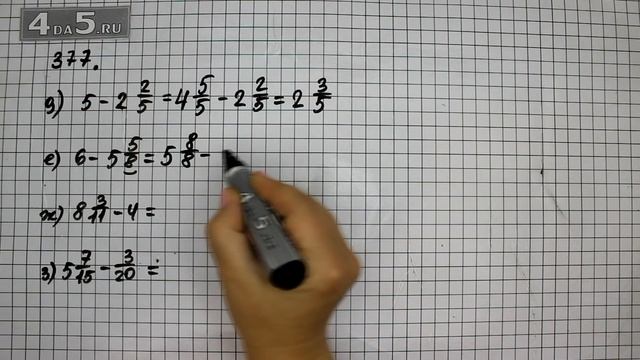 4DA5.RU
377.
д) 5 - 2 2/5 = 4 5/5 - 2 2/5 = 2 3/5
е) 6 - 5 5/8 = 5 8/8 -
ж) 8 3/11 - 4 =
з) 5 7/15 - 3/20 =